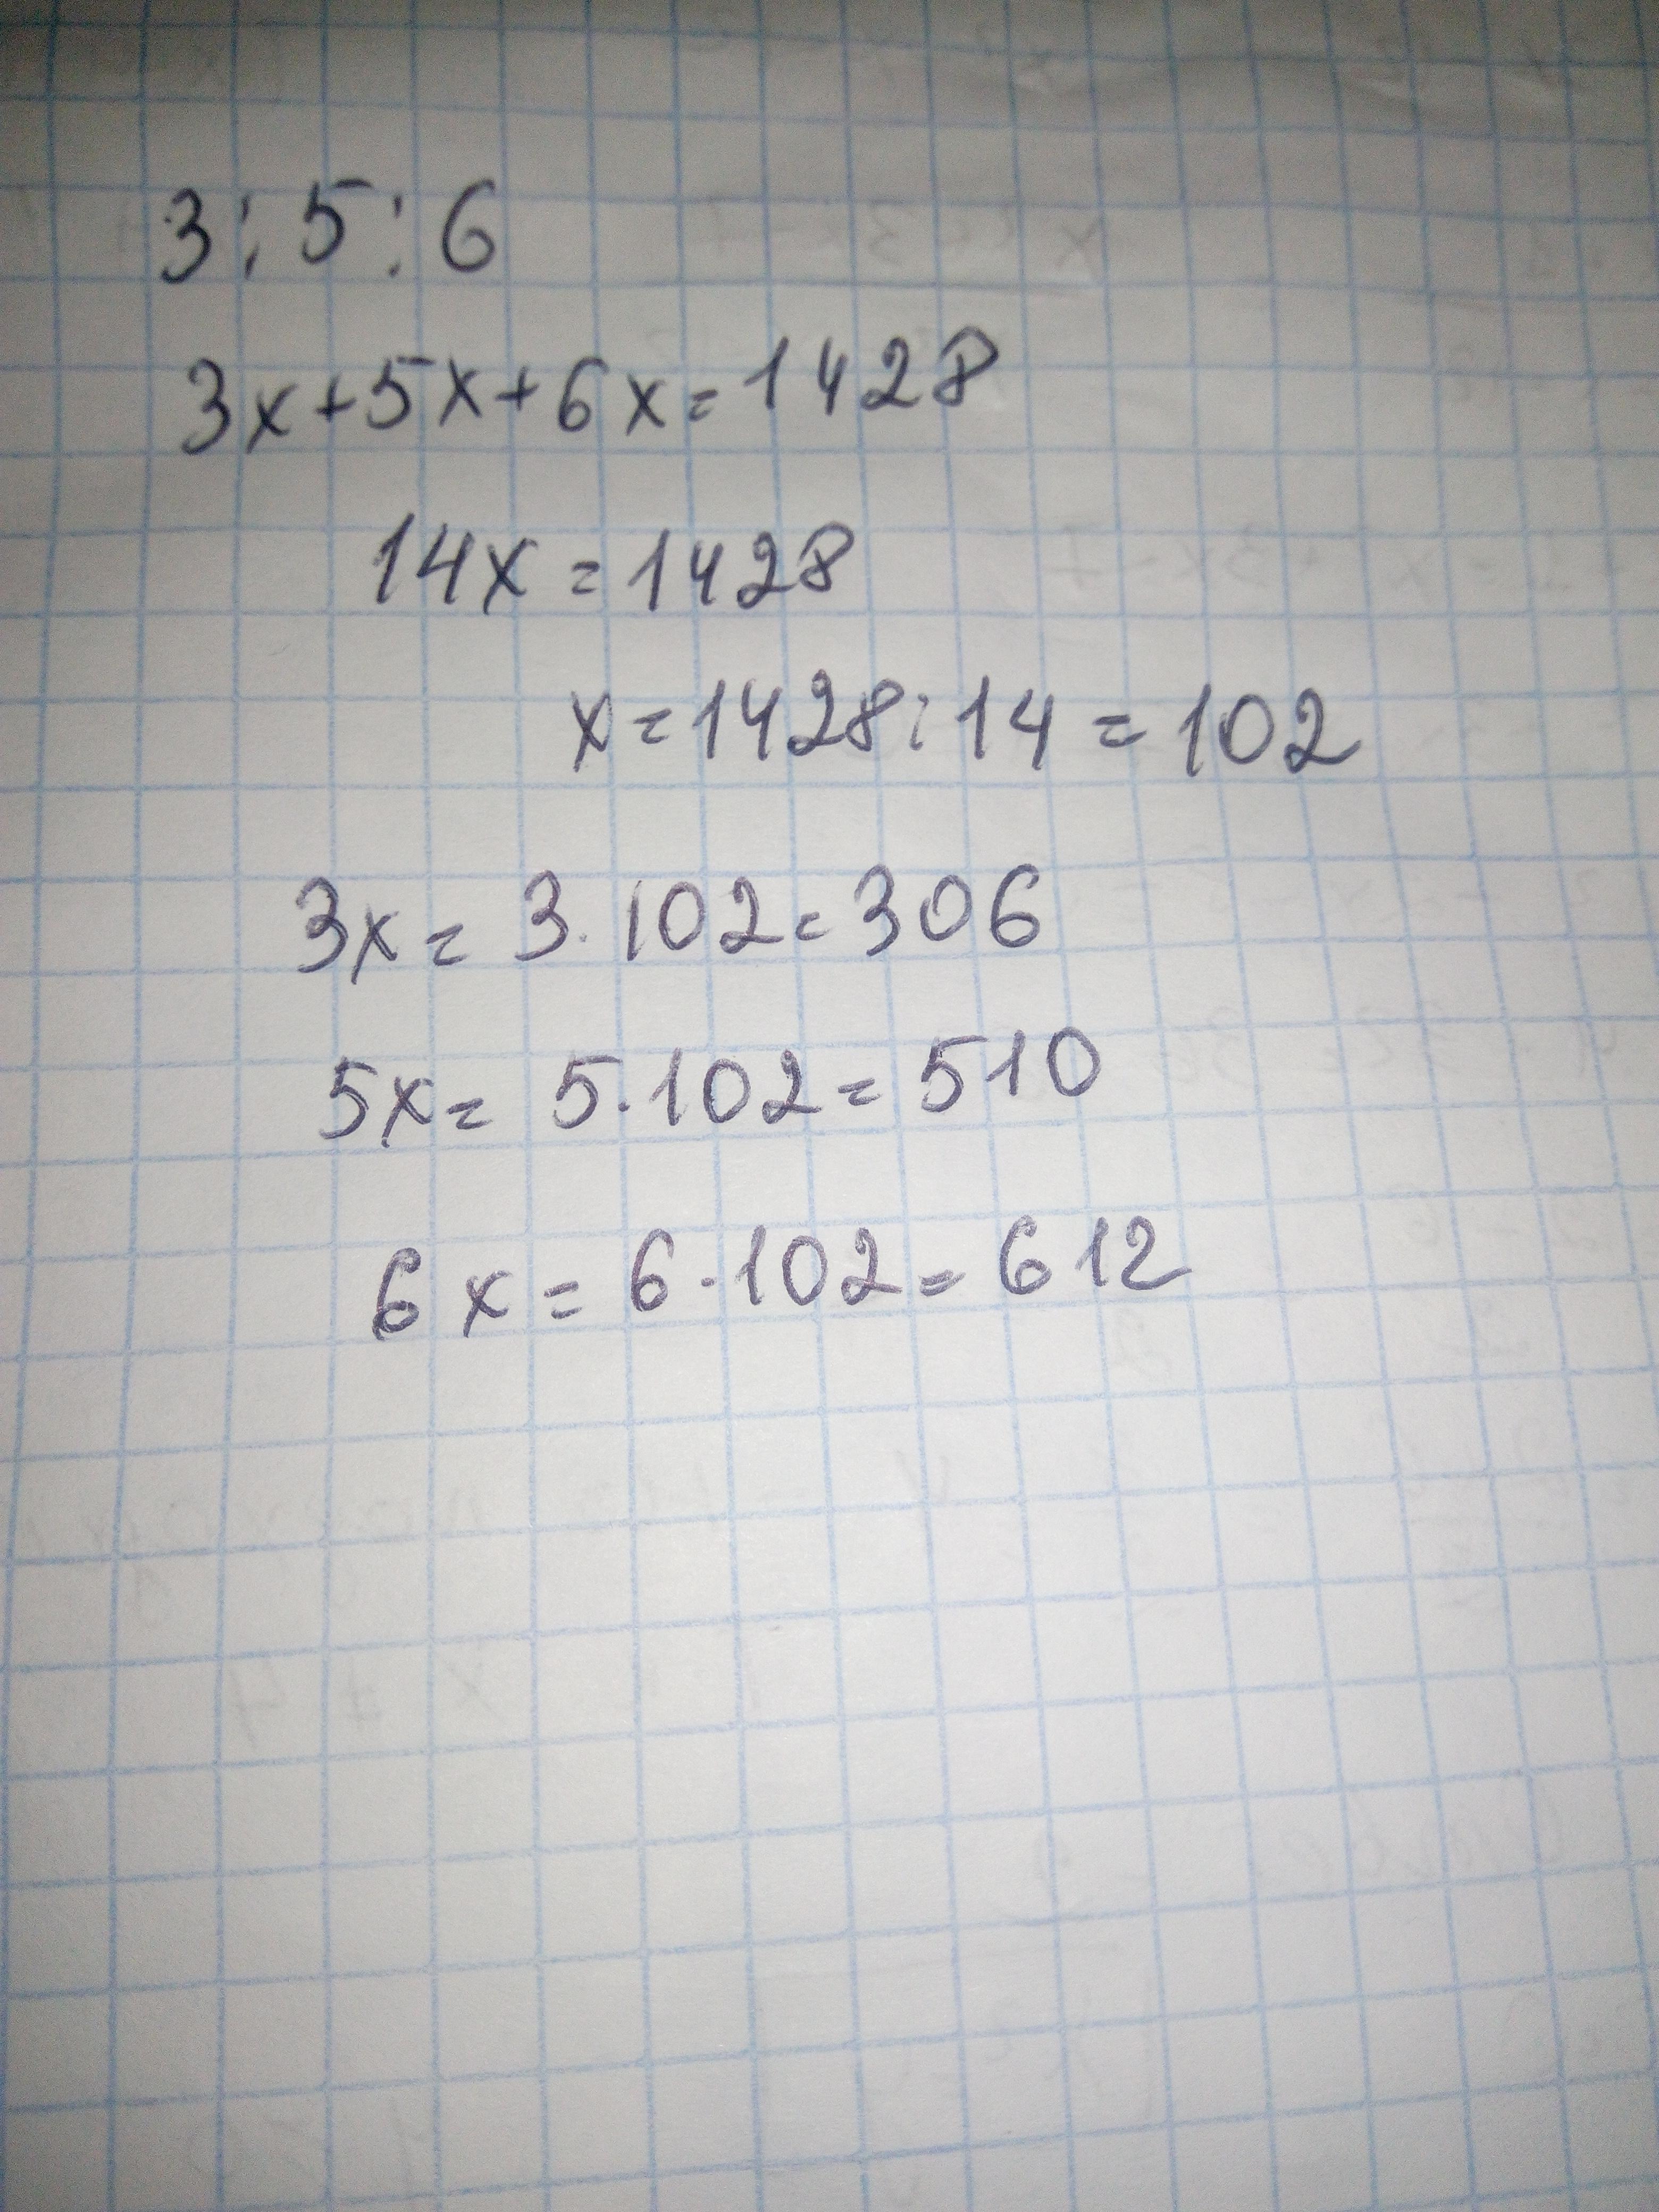 3:5:6
3x+5x+6x=1428
14x=1428
x=1428:14=102
3x=3·102=306
5x=5·102=510
6x=6·102=612